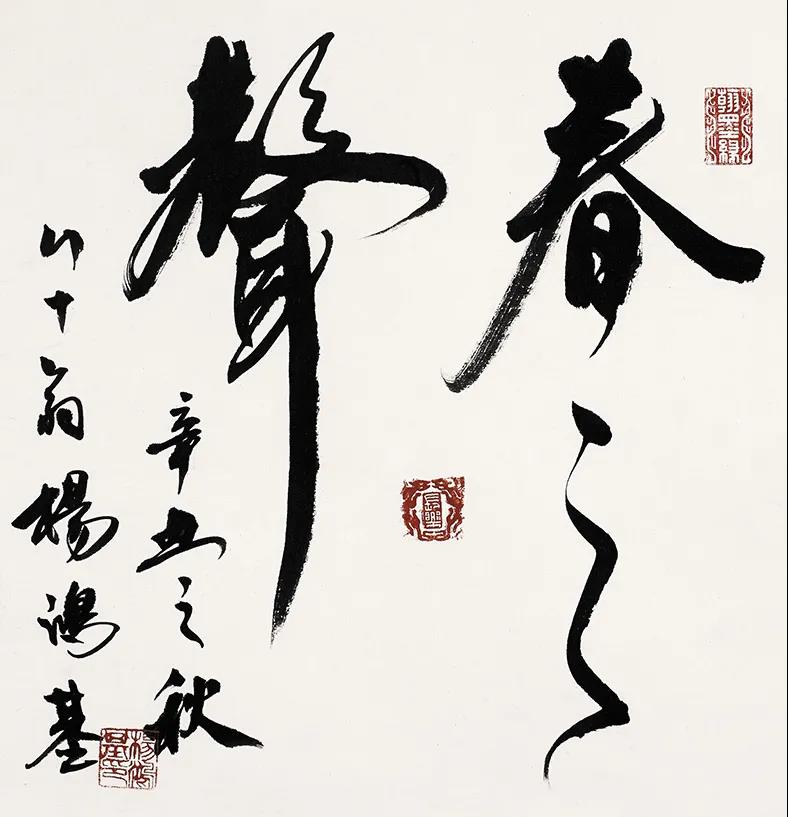 翰墨緣
春之
聲
辛丑之秋
八十翁楊鴻基